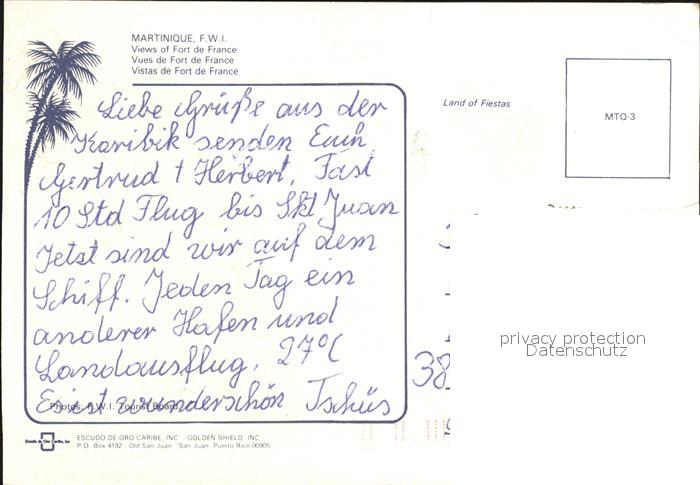 MARTINIQUE, F.W.I.
Views of Fort de France
Vues de Fort de France
Vistas de Fort de France
Liebe Grüße aus der
Karibik senden Euch
Gertrud + Herbert, Fast
10 Std Flug bis Skt Juan
Jetzt sind wir auf dem
Schiff. Jeden Tag ein
anderer Hafen und
Landausflug, 27°C
Es ist wunderschön Tschüs
Photos: F.W.I. Tourist Board
Land of Fiestas
MTQ-3
38
privacy protection
Datenschutz
Escudo de Oro Caribe, Inc
ESCUDO DE ORO CARIBE, INC GOLDEN SHIELD, INC
P.O. Box 4192 Old San Juan San Juan, Puerto Rico 00905